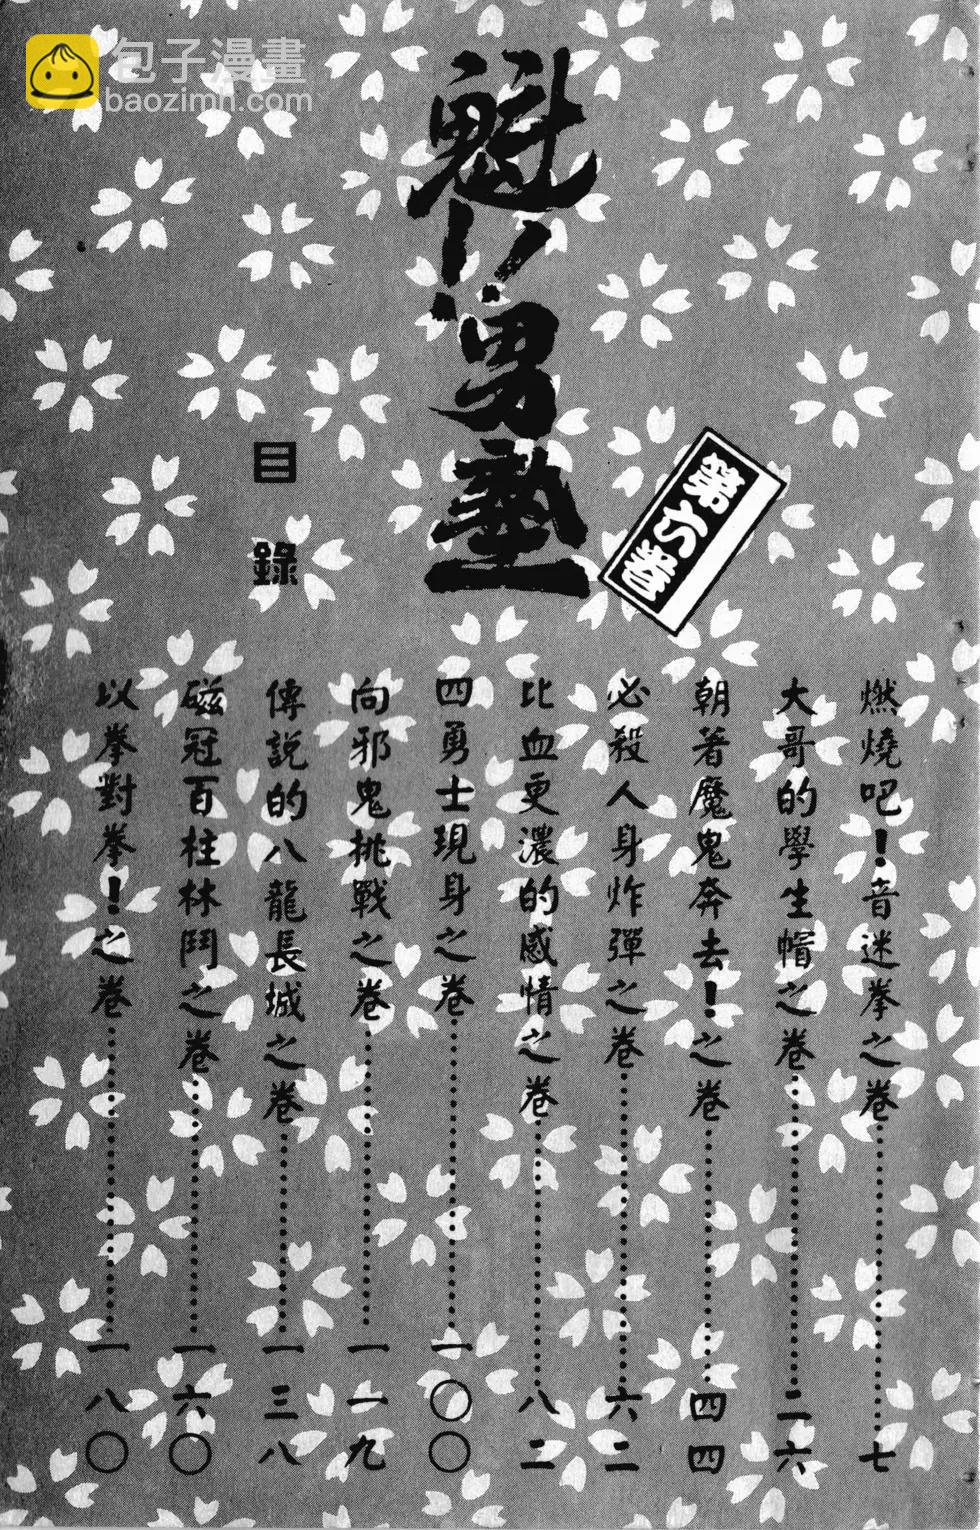 包子漫畫
baozimh.com
魁!!男塾
第六卷
目錄
燃燒吧!音迷拳之卷……七
大哥的學生帽之卷……二六
朝著魔鬼奔去!之卷……四四
必殺人身炸彈之卷……六二
比血更濃的感情之卷……八二
四勇士現身之卷……一〇〇
向邪鬼挑戰之卷……一一九
傳說的八龍長城之卷……一三八
磁冠百柱林鬥之卷……一六〇
以拳對拳!之卷……一八〇